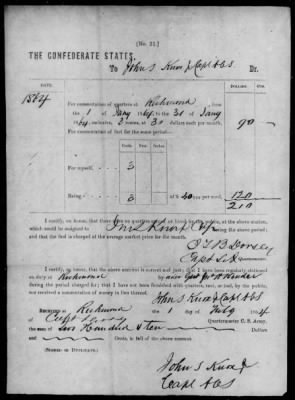 [No. 21.]
THE CONFEDERATE STATES,
To John S Knox Capt ACS Dr.
DATE. DOLLARS. CTS.
1864 For commutation of quarters at Richmond, from
the 1 of Jany 1864 to the 31 of Jany
1864, inclusive, 3 rooms at 30 dollars each per month. 90 —
For commutation of fuel for the same period—
Cords
For myself, 3
Being 3 at $ 40 per cord, 120
210
I certify, on honor, that there were no quarters owned or hired by the public, at the above station,
which could be assigned to during the above period;
and that the fuel is charged at the average market price for the month.
Dorsey
Capt
I certify, on honor, that the above account is correct and just; that I have been regularly stationed
on duty at Richmond by order Genl Jno H Winder
during the period charged for; that I have not been furnished with quarters, tent, or fuel, by the public,
nor received a commutation of money in lieu thereof.
John S Knox Capt ACS
Received at Richmond the 1 of Feby 1864
of Capt Quartermaster C. S. Army,
the sum of Two Hundred & Ten Dollars
and Cents, in full of the above account.
[SIGNED IN DUPLICATE.]
John S Knox
Capt ACS